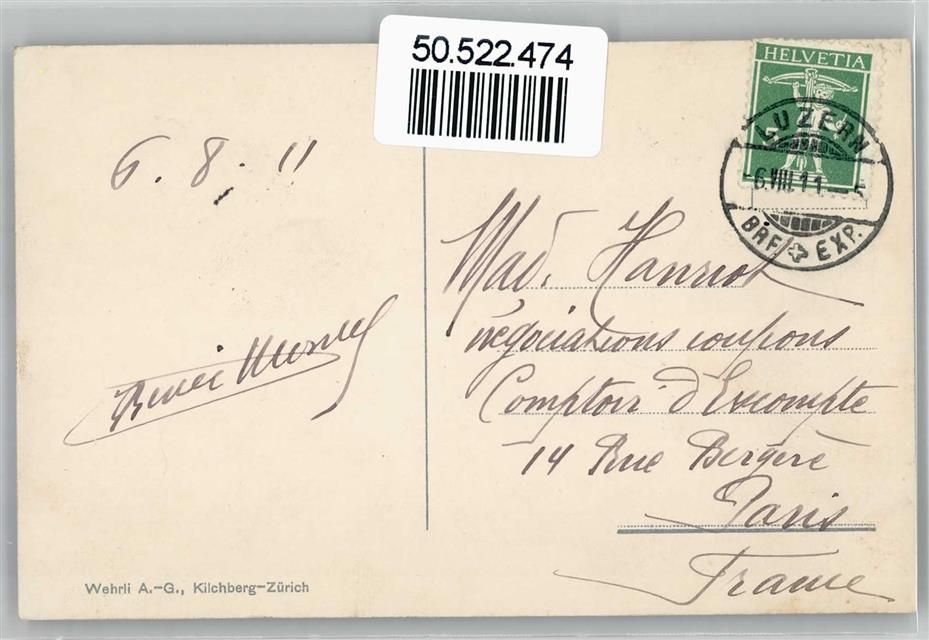 50.522.474
HELVETIA
LUZERN
6.VIII.11
BRF. EXP.
6. 8. 11
Mad. Hanriot
négociations coupons
Comptoir d'Escompte
14 Rue Bergère
Paris
France
Renée
Wehrli A.-G., Kilchberg-Zürich